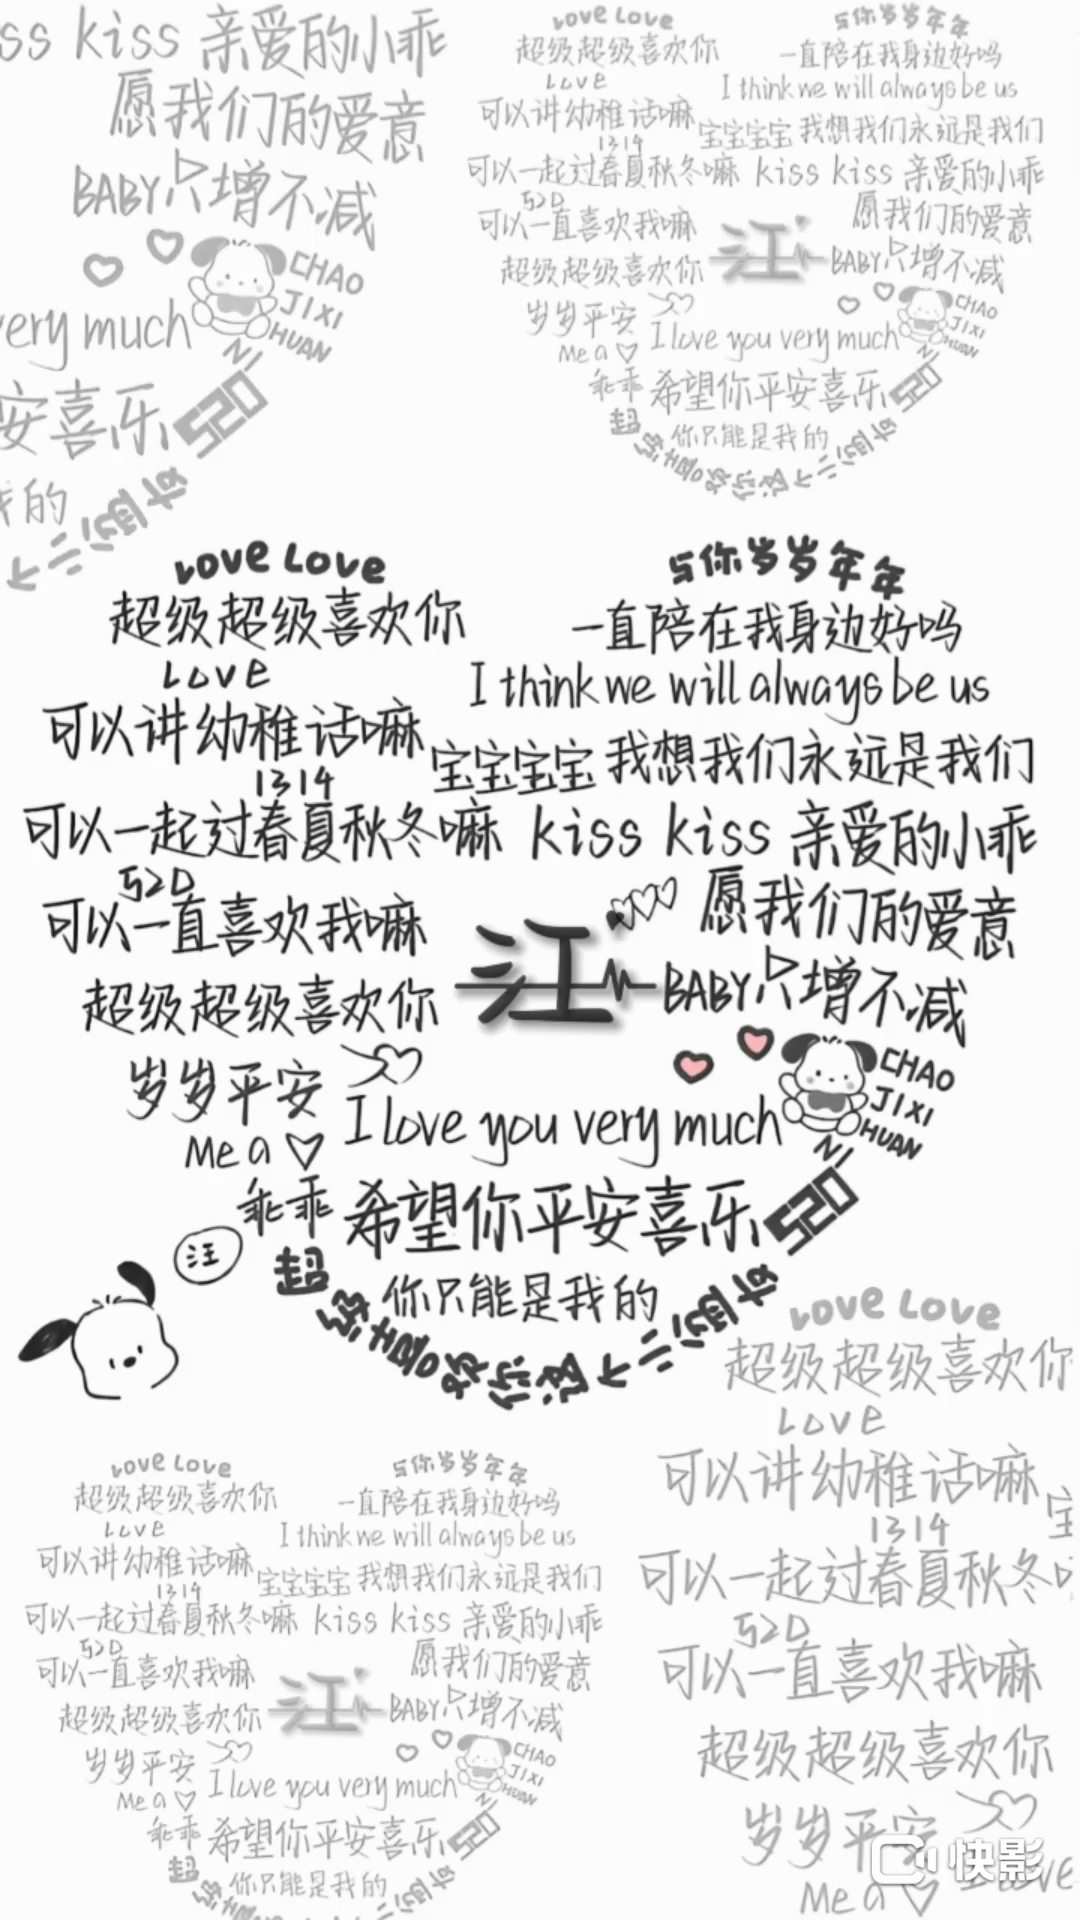 ss kiss 亲爱的小乖
愿我们的爱意
BABY只增不减
CHAO
JIXI
HUAN
NI
very much
安喜乐 520
我的
Love Love
与你岁岁年年
超级超级喜欢你
一直陪在我身边好吗
Love
I think we will always be us
可以讲幼稚话嘛
宝宝宝宝 我想我们永远是我们
1314
可以一起过春夏秋冬嘛 kiss kiss 亲爱的小乖
520
愿我们的爱意
可以一直喜欢我嘛
汪
BABY只增不减
超级超级喜欢你
岁岁平安
CHAO
JIXI
HUAN
NI
Me a
I love you very much
乖乖 希望你平安喜乐 520
你只能是我的
Love Love
与你岁岁年年
超级超级喜欢你
一直陪在我身边好吗
Love
I think we will always be us
可以讲幼稚话嘛
宝宝宝宝 我想我们永远是我们
1314
可以一起过春夏秋冬嘛 kiss kiss 亲爱的小乖
520
愿我们的爱意
可以一直喜欢我嘛
汪
BABY只增不减
超级超级喜欢你
岁岁平安
CHAO
JIXI
HUAN
NI
Me a
I love you very much
乖乖 希望你平安喜乐 520
汪
你只能是我的
超级喜欢你这个
Love Love
超级超级喜欢你
Love
可以讲幼稚话嘛
1314
宝
可以一起过春夏秋冬
520
可以一直喜欢我嘛
超级超级喜欢你
岁岁平安
Me a
I love
Love Love
与你岁岁年年
超级超级喜欢你
一直陪在我身边好吗
Love
I think we will always be us
可以讲幼稚话嘛
宝宝宝宝 我想我们永远是我们
1314
可以一起过春夏秋冬嘛 kiss kiss 亲爱的小乖
520
愿我们的爱意
可以一直喜欢我嘛
汪
BABY只增不减
超级超级喜欢你
岁岁平安
CHAO
JIXI
HUAN
NI
Me a
I love you very much
乖乖 希望你平安喜乐 520
你只能是我的
快影